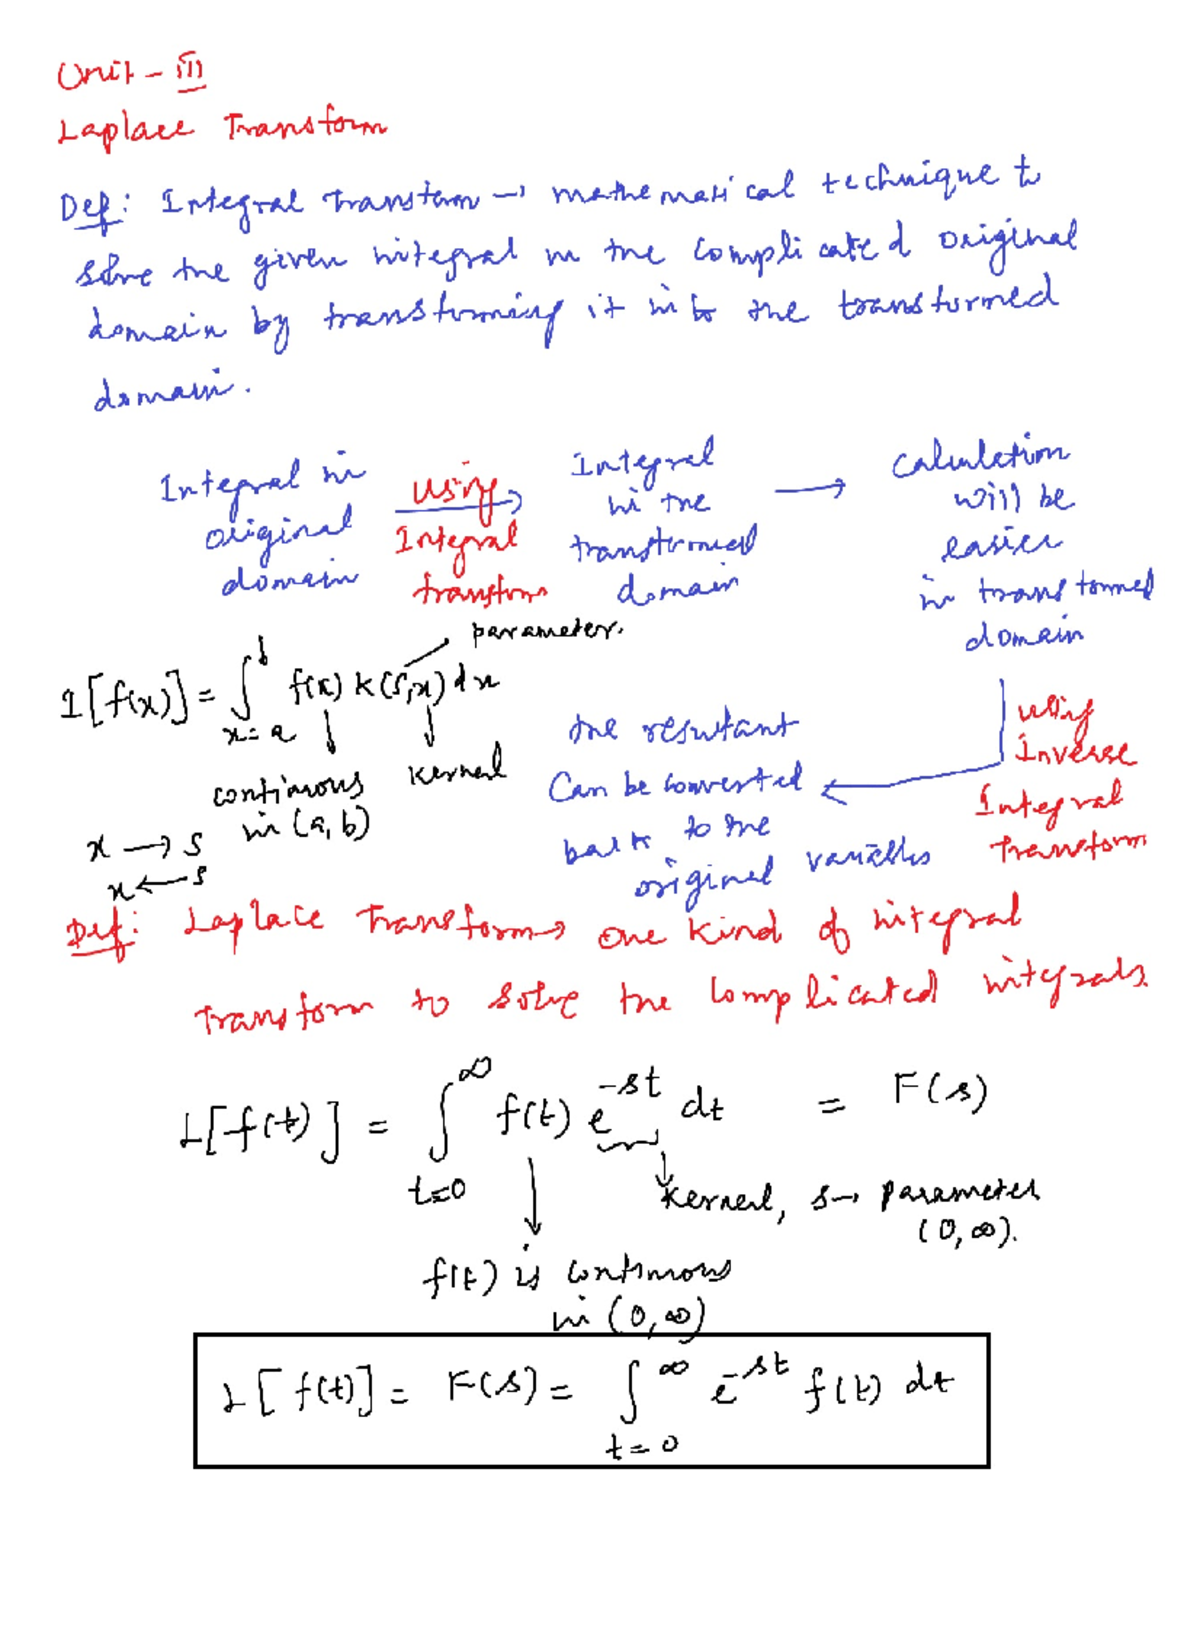 Unit - III
Laplace Transform
Def: Integral Transform → mathematical technique to
solve the given integral in the complicated original
domain by transforming it into the transformed
domain.
Integral in
original
domain
using
Integral
transform
Integral
in the
transformed
domain
→
Calculation
will be
easier
in transformed
domain
using
Inverse
Integral
Transform
the resultant
can be converted
back to the
original variables
parameter.
I[f(x)] = ∫_{x=a}^{b} f(x) k(s,x) dx
continous
in (a, b)
kernel
x → s
x ← s
Def: Laplace Transform → one kind of integral
transform to solve the complicated integrals.
L[f(t)] = ∫_{t=0}^{∞} f(t) e^{-st} dt = F(s)
kernel, s → parameter
(0, ∞).
f(t) is continous
in (0, ∞)
L[f(t)] = F(s) = ∫_{t=0}^{∞} e^{-st} f(t) dt